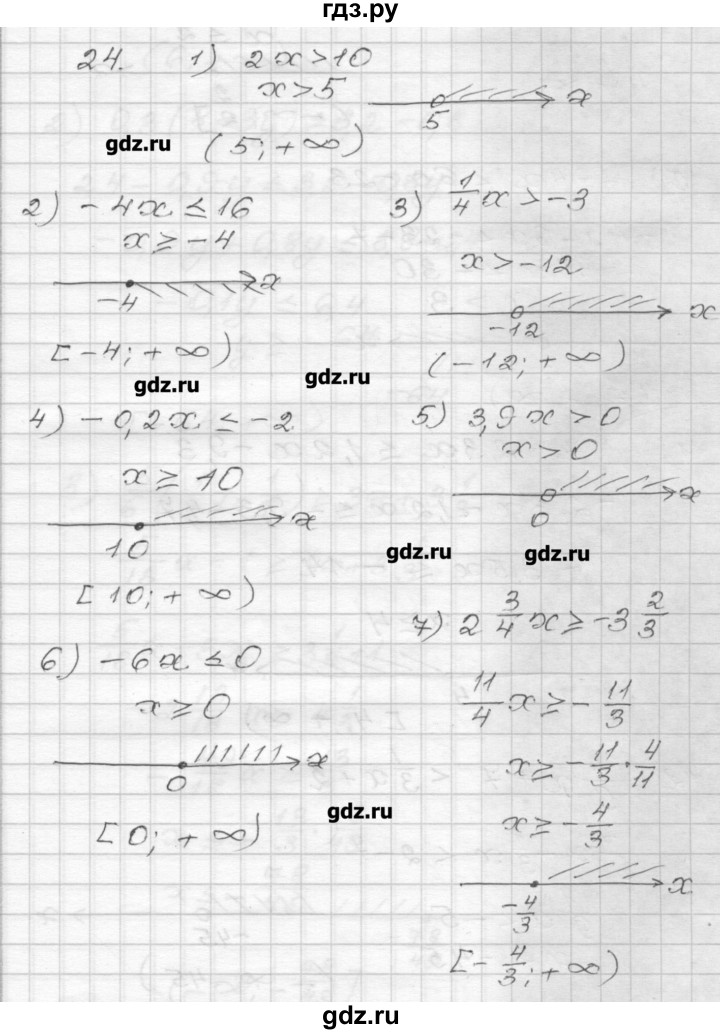 гдз.ру
24. 1) 2x>10
x>5
x
5
gdz.ru
(5;+∞)
2) -4x ≤ 16
x ≥ -4
x
-4
[-4;+∞)
gdz.ru
3) 1/4 x > -3
x > -12
x
-12
(-12;+∞)
gdz.ru
4) -0,2x ≤ -2
x ≥ 10
x
10
[10;+∞)
5) 3,9x > 0
x > 0
x
0
gdz.ru
gdz.ru
6) -6x ≤ 0
x ≥ 0
x
0
gdz.ru
[0;+∞)
7) 2 3/4 x ≥ -3 2/3
11/4 x ≥ - 11/3
x ≥ - 11/3 · 4/11
x ≥ - 4/3
x
-4/3
[- 4/3;+∞)
gdz.ru